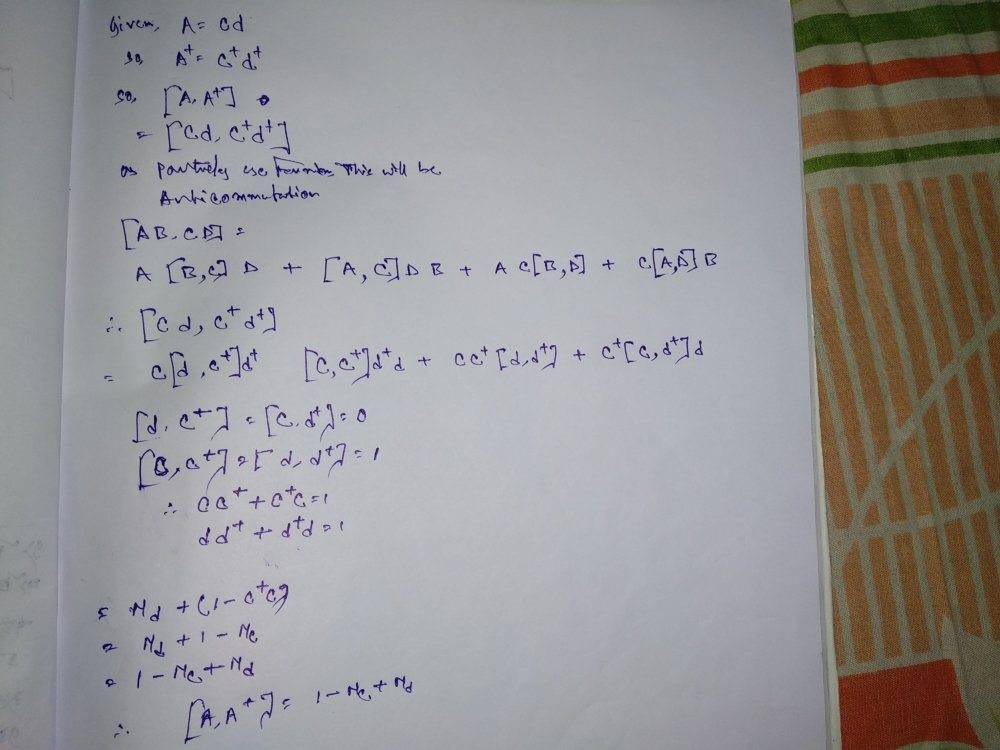 Given, A = Cd
so, A⁺ = C⁺d⁺
so, [A, A⁺]
= [Cd, C⁺d⁺]
as particles are Fermion This will be
Anticommutation
[AB, CD] =
A [B,C] D + [A, C] D B + A C [B, D] + C [A,D] B
∴ [C d, C⁺ d⁺]
= C[d, C⁺]d⁺ [C, C⁺]d⁺d + CC⁺ [d, d⁺] + C⁺[C, d⁺]d
[d, C⁺] = [C, d⁺] = 0
[C, C⁺] = [d, d⁺] = 1
∴ CC⁺ + C⁺C = 1
dd⁺ + d⁺d = 1
= N_d + (1 - C⁺C)
= N_d + 1 - N_C
= 1 - N_C + N_d
∴ [A, A⁺] = 1 - N_C + N_d